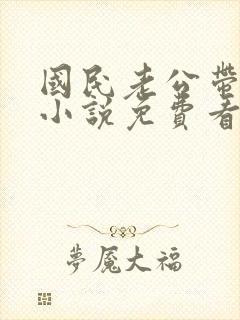 國民老公帶
小說免費看
夢魘大福